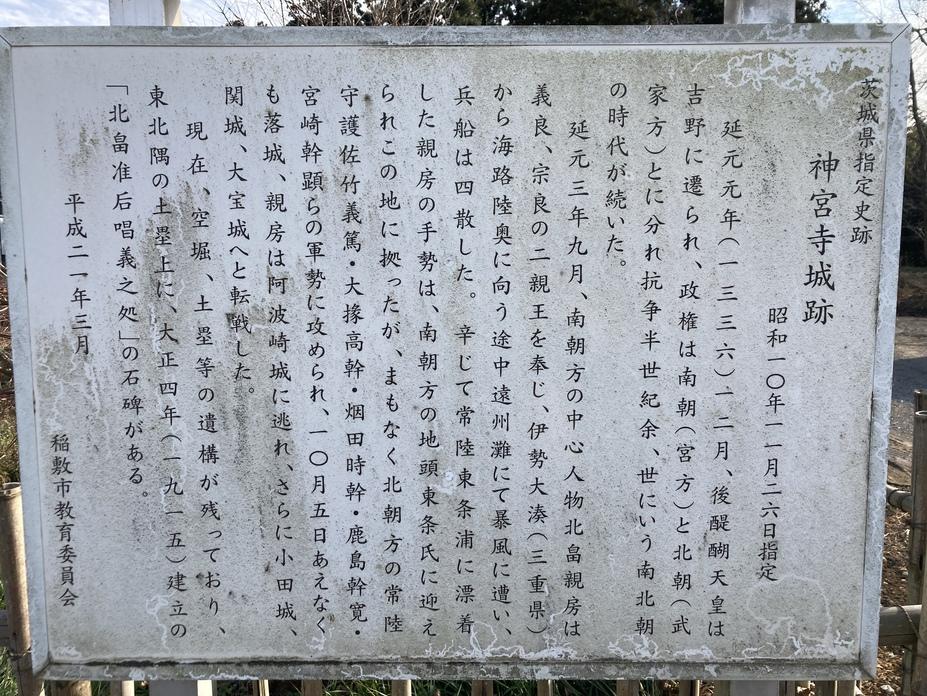 茨城県指定史跡
神宮寺城跡
昭和一〇年一一月二六日指定
延元元年(一三三六)一二月、後醍醐天皇は
吉野に遷られ、政権は南朝(宮方)と北朝(武
家方)とに分れ抗争半世紀余、世にいう南北朝
の時代が続いた。
延元三年九月、南朝方の中心人物北畠親房は
義良、宗良の二親王を奉じ、伊勢大湊(三重県)
から海路陸奥に向う途中遠州灘にて暴風に遭い、
兵船は四散した。辛じて常陸東条浦に漂着
した親房の手勢は、南朝方の地頭東条氏に迎え
られこの地に拠ったが、まもなく北朝方の常陸
守護佐竹義篤・大掾高幹・烟田時幹・鹿島幹寛・
宮崎幹顕らの軍勢に攻められ、一〇月五日あえなく
も落城、親房は阿波崎城に逃れ、さらに小田城、
関城、大宝城へと転戦した。
現在、空堀、土塁等の遺構が残っており、
東北隅の土塁上に、大正四年(一九一五)建立の
「北畠准后唱義之処」の石碑がある。
平成二一年三月
稲敷市教育委員会